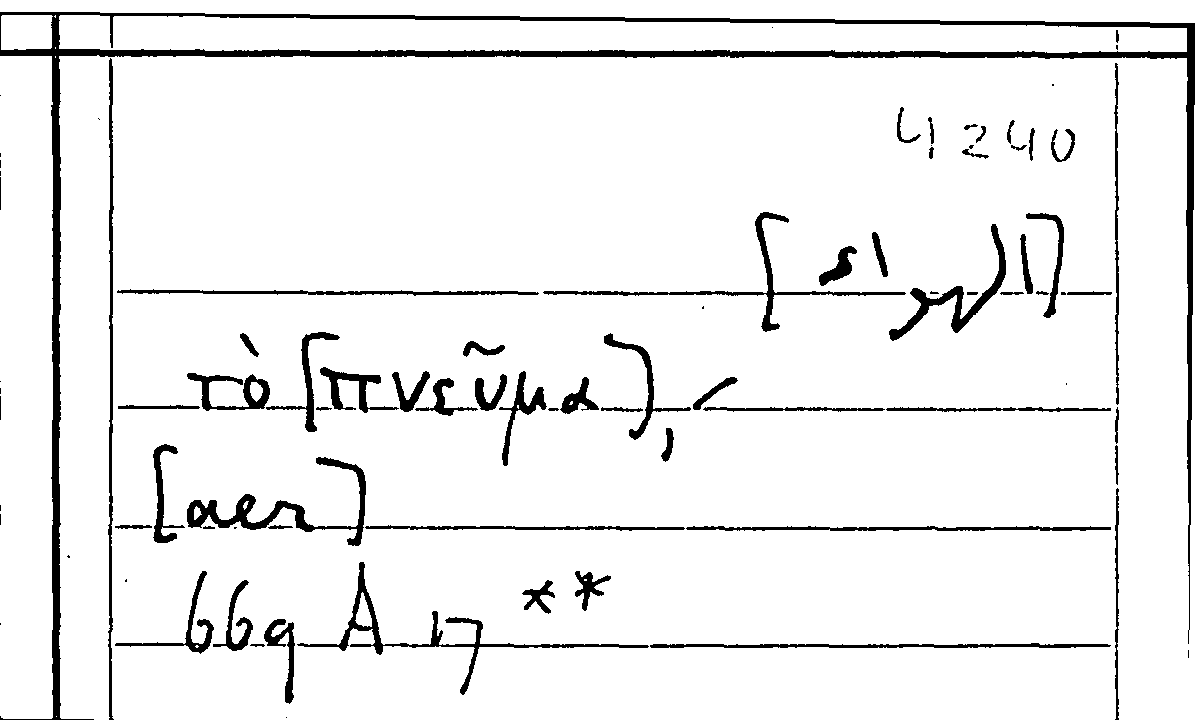 4240
[الهواء]
τὸ [πνεῦμα], –
[aer]
669 A 17 **